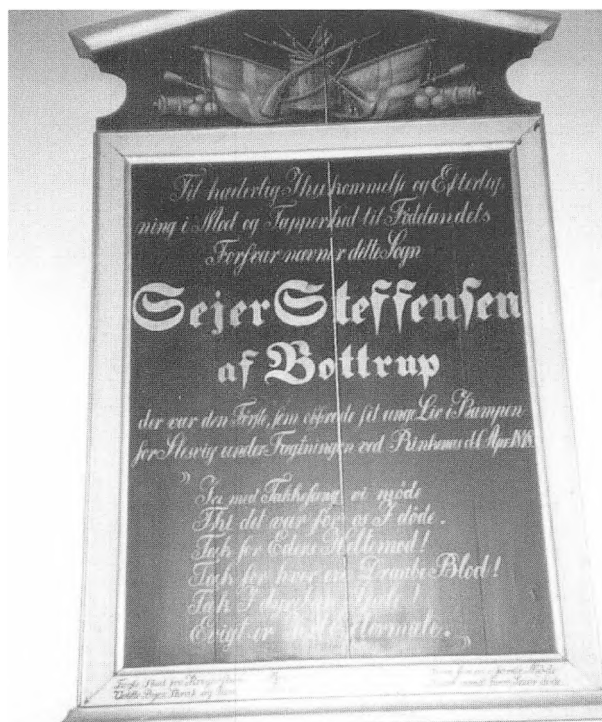 Til hæderlig Ihukommelse og Efterlig,
ning i Mod og Tapperhed til Födelandets
Forsvar nævner dette Sogn
Sejer Steffensen
af Bottrup
der var den Förste, som offrede sit unge Liv i Kampen
for Slesvig under Fægtningen ved Rinkenæs d. 1. Apr. 1848
„Ja med Takkesang vi möde
Thi det var för os I döde.
Tak for Eders Heltemod!
Tak for hver en Draabe Blod!
Tak I dyrebar
Evigt er